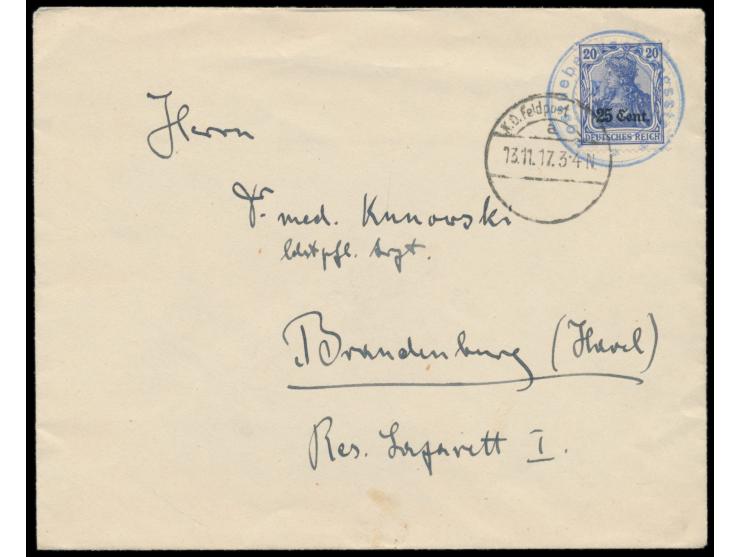 20 20
25 Cent.
DEUTSCHES REICH
K.D. Feldpost
a
13.11.17.3-4 N.
Herrn
Dr. med. Kunowski
Arzt.
Brandenburg (Havel)
Res. Lazarett I.